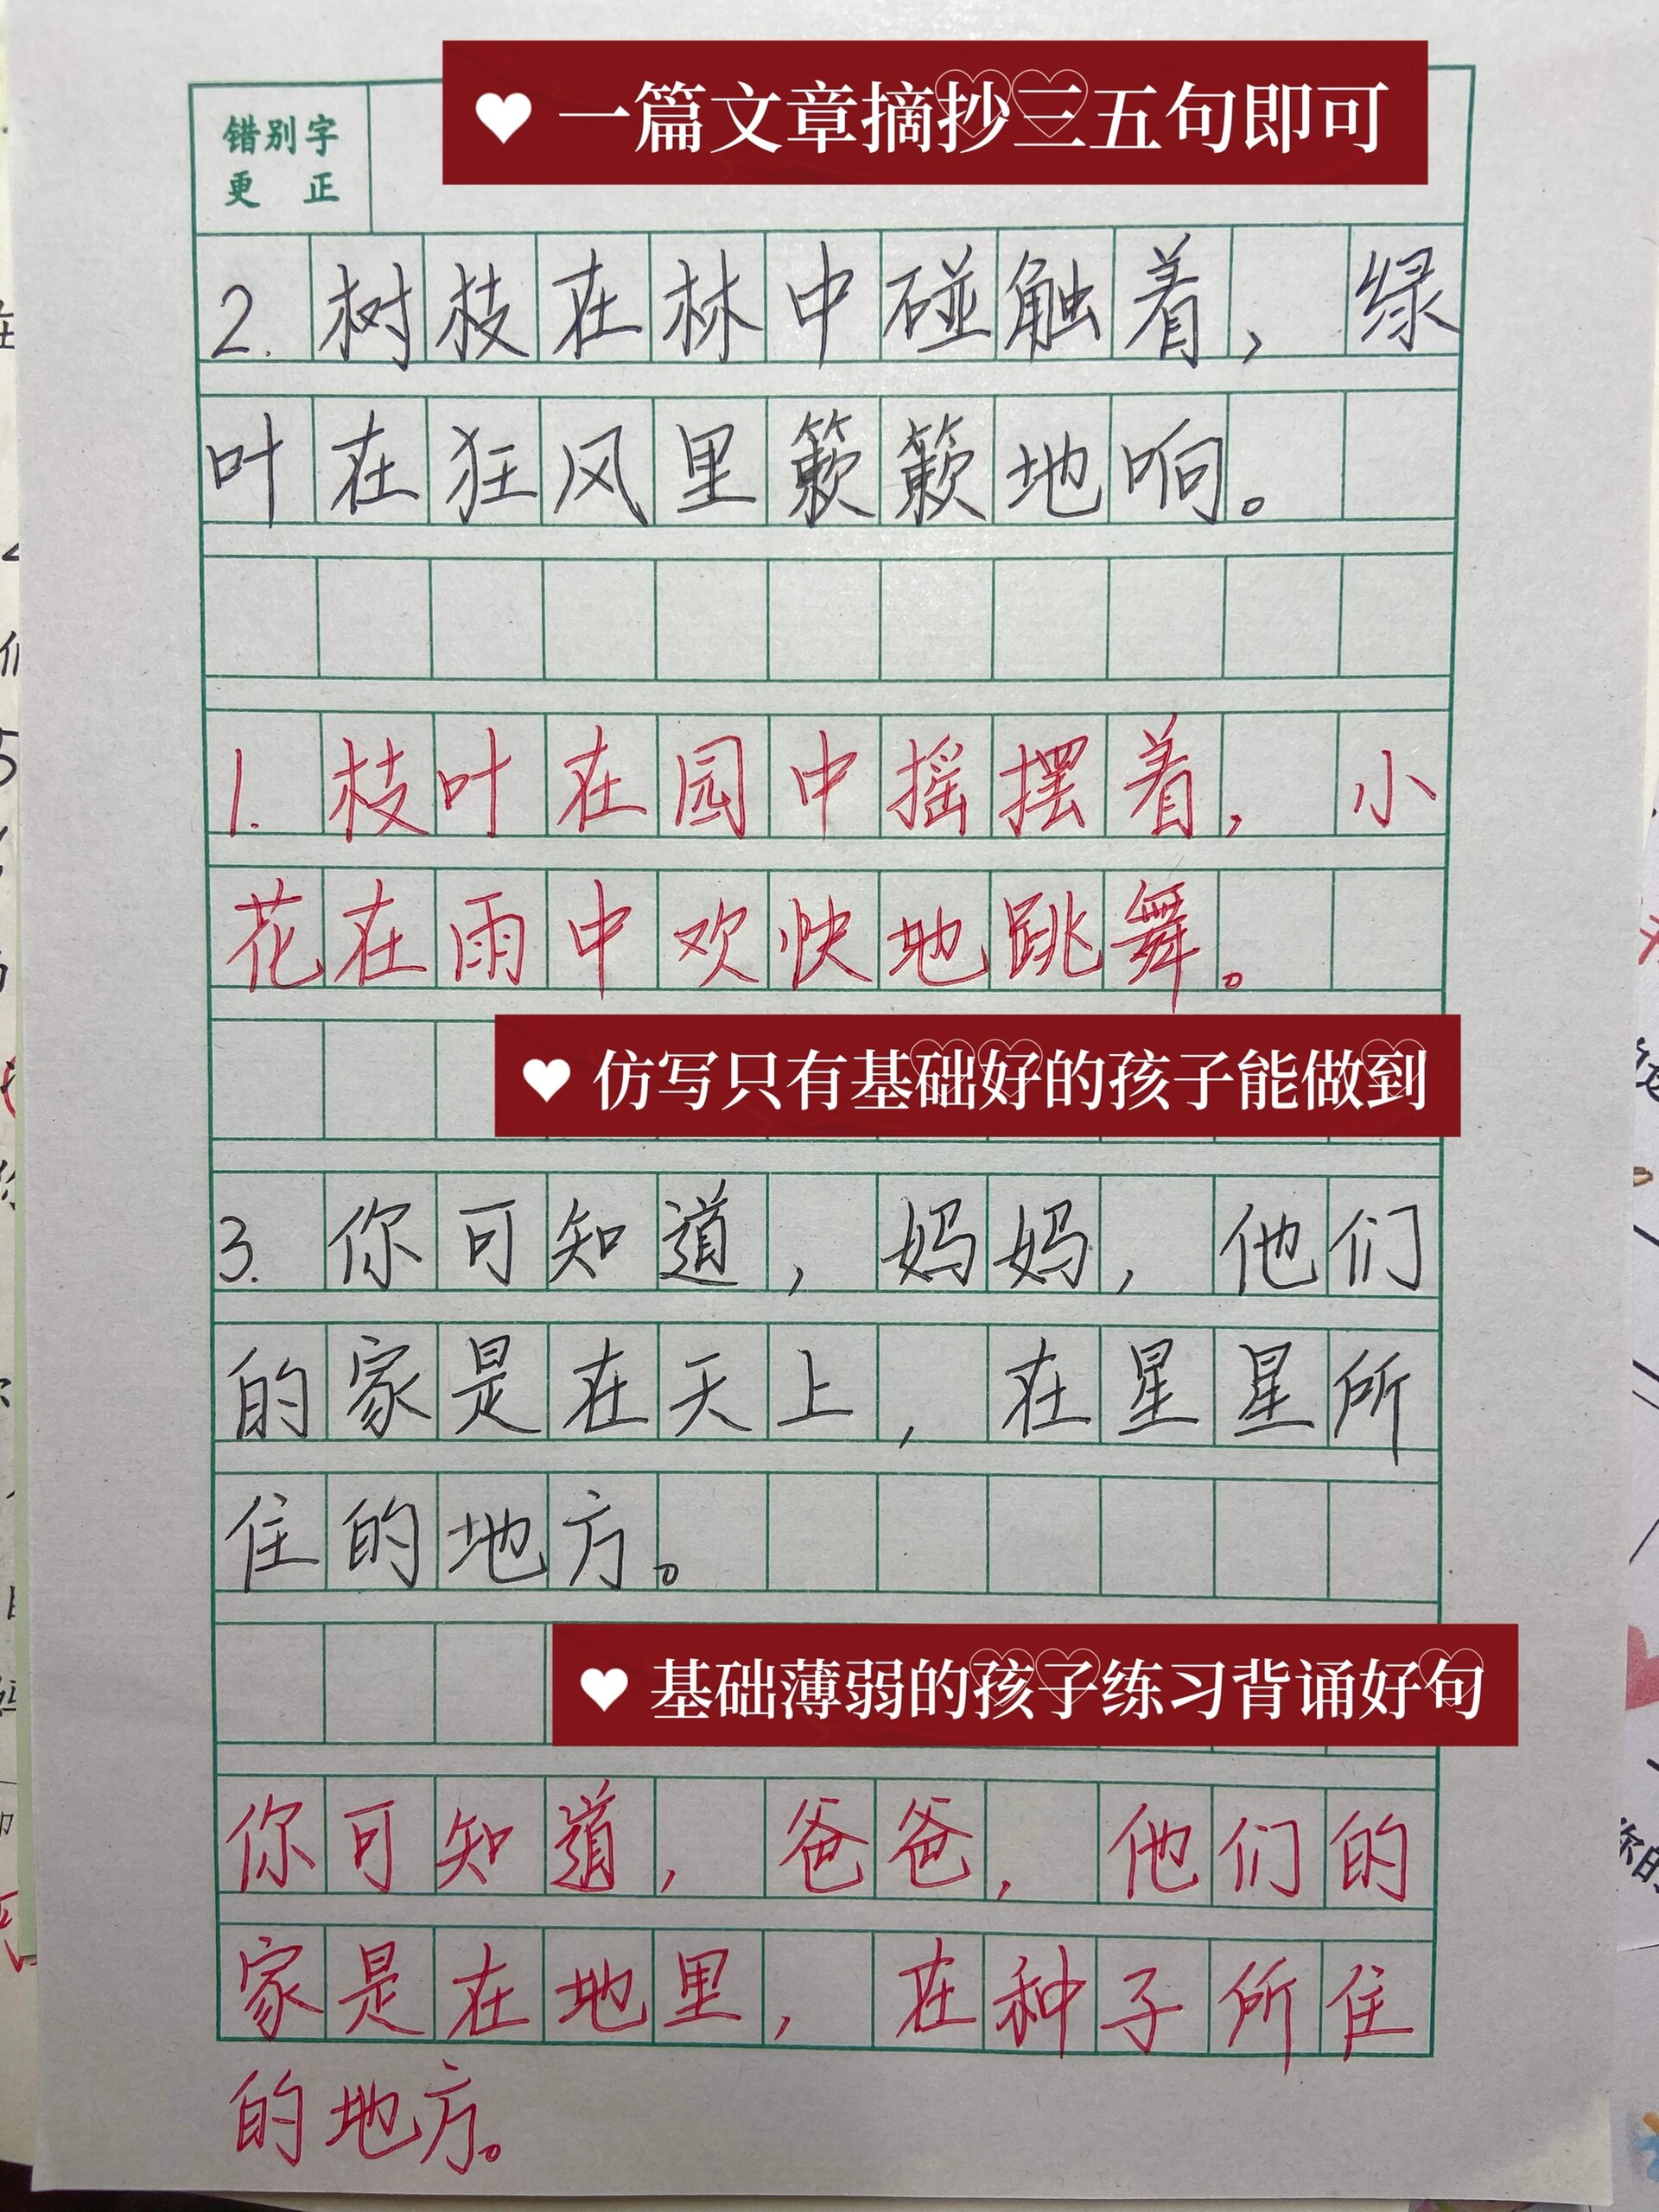 一篇文章摘抄三五句即可
错别字
更 正
2. 树枝在林中碰触着，绿
叶在狂风里簌簌地响。
1. 枝叶在园中摇摆着，小
花在雨中欢快地跳舞。
仿写只有基础好的孩子能做到
3. 你可知道，妈妈，他们
的家是在天上，在星星所
住的地方。
基础薄弱的孩子练习背诵好句
你可知道，爸爸，他们的
家是在地里，在种子所住
的地方。